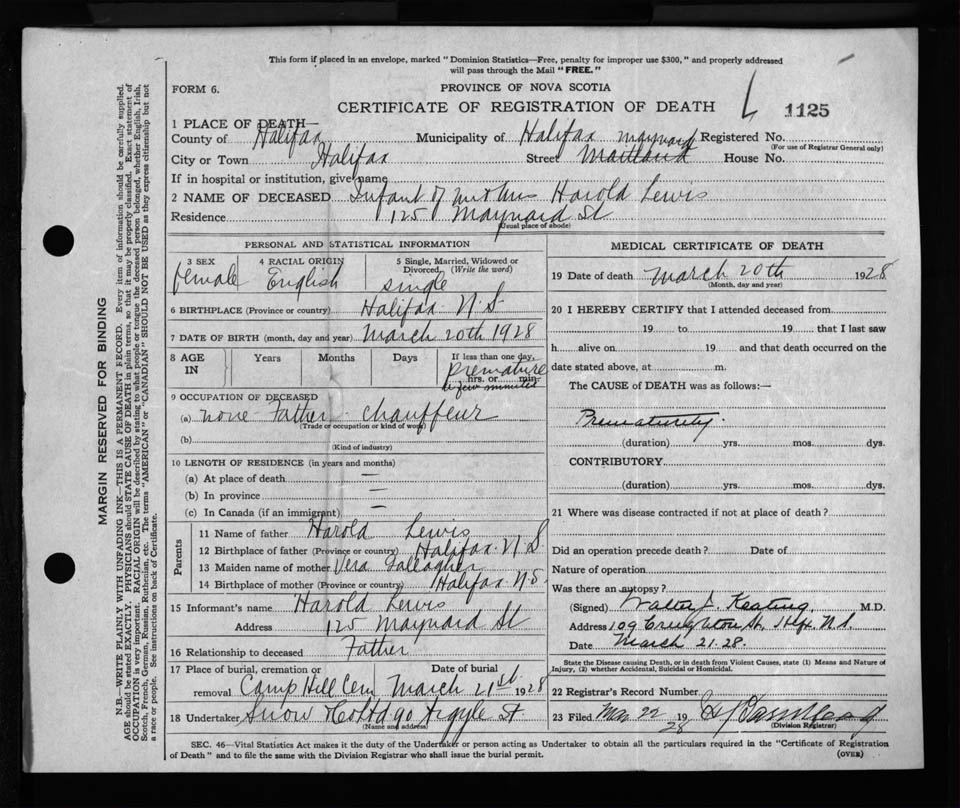 This form if placed in an envelope, marked "Dominion Statistics—Free, penalty for improper use $300," and properly addressed
will pass through the Mail "FREE."
FORM 6.
PROVINCE OF NOVA SCOTIA
CERTIFICATE OF REGISTRATION OF DEATH
L 1125
1 PLACE OF DEATH—
County of Halifax Municipality of Halifax Maynard Registered No.
(For use of Registrar General only)
City or Town Halifax Street Maitland House No.
If in hospital or institution, give name
2 NAME OF DECEASED Infant of Mr & Mrs Harold Lewis
Residence 125 Maynard St
(Usual place of abode)
PERSONAL AND STATISTICAL INFORMATION
3 SEX 4 RACIAL ORIGIN 5 Single, Married, Widowed or
Divorced, (Write the word)
female English single
6 BIRTHPLACE (Province or country) Halifax N.S
7 DATE OF BIRTH (month, day and year) March 20th 1928
8 AGE IN Years Months Days If less than one day,
Premature
hrs. or min.
a few minutes
9 OCCUPATION OF DECEASED
(a) none Father - chauffeur
(Trade or occupation or kind of work)
(b)
(Kind of industry)
10 LENGTH OF RESIDENCE (in years and months)
(a) At place of death —
(b) In province —
(c) In Canada (if an immigrant)
Parents
11 Name of father Harold Lewis
12 Birthplace of father (Province or country) Halifax N.S
13 Maiden name of mother Vera Gallagher
14 Birthplace of mother (Province or country) Halifax N.S.
15 Informant's name Harold Lewis
Address 125 Maynard St
16 Relationship to deceased Father
17 Place of burial, cremation or Date of burial
removal Camp Hill Cem March 21st 1928
18 Undertaker Snow & Co Ltd 90 Argyle St
(Name and address)
MEDICAL CERTIFICATE OF DEATH
19 Date of death March 20th 1928
(Month, day and year)
20 I HEREBY CERTIFY that I attended deceased from
19 to 19 that I last saw
h alive on 19 and that death occurred on the
date stated above, at m.
The CAUSE of DEATH was as follows:—
Prematurity.
(duration) yrs. mos. dys.
CONTRIBUTORY
(duration) yrs. mos. dys.
21 Where was disease contracted if not at place of death?
Did an operation precede death? Date of
Nature of operation
Was there an autopsy?
(Signed) Walter J. Keating, M.D.
Address 109 Creighton St, Hfx. N.S
Date March 21.28.
State the Disease causing Death, or in death from Violent Causes, state (1) Means and Nature of
Injury, (2) whether Accidental, Suicidal or Homicidal.
22 Registrar's Record Number
23 Filed Mar 22 1928
(Division Registrar)
SEC. 46—Vital Statistics Act makes it the duty of the Undertaker or person acting as Undertaker to obtain all the particulars required in the "Certificate of Registration
of Death" and to file the same with the Division Registrar who shall issue the burial permit. (OVER)
MARGIN RESERVED FOR BINDING
N.B.—WRITE PLAINLY WITH UNFADING INK—THIS IS A PERMANENT RECORD. Every item of information should be carefully supplied.
AGE should be stated EXACTLY. PHYSICIANS should STATE CAUSE OF DEATH in plain terms, so that it may be properly classified. Exact statement of
OCCUPATION is very important. RACIAL ORIGIN will be described by stating to what people or tongue the deceased person belonged, whether English, Irish,
Scotch, French, German, Russian, Ruthenian, etc. The terms "AMERICAN" or "CANADIAN" SHOULD NOT BE USED as they express citizenship but not
a race or people. See instructions on back of Certificate.